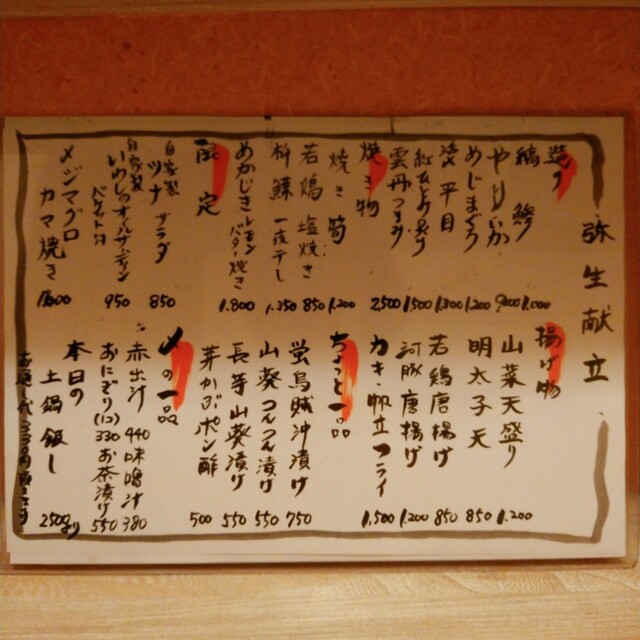 弥生献立
造り
縞鯵 1,000
やりいか 900
めじまぐろ 1,200
平目 1,300
紅ひとり炙り 1,500
雲丹つまみ 2,500
焼き物
焼き筍 1,200
若鶏塩焼き 850
一夜干し 1,350
めかじきレモンバター焼き 1,800
限定
自家製ツナサラダ 850
自家製いわしのオイルサーディン
バケット付 950
メジマグロ
カマ焼き
揚げ物
山菜天盛り 1,200
明太子天 850
若鶏唐揚げ 850
河豚唐揚げ 1,200
カキ・帆立フライ 1,500
ちょっと一品
蛍烏賊沖漬け 750
山葵つんつん漬け 550
長芋山葵漬け 550
芽かぶポン酢 500
〆の一品
赤出汁 440 味噌汁 380
おにぎり(1コ) 330 お茶漬け 550
本日の
土鍋飯し 2500より
お通し代